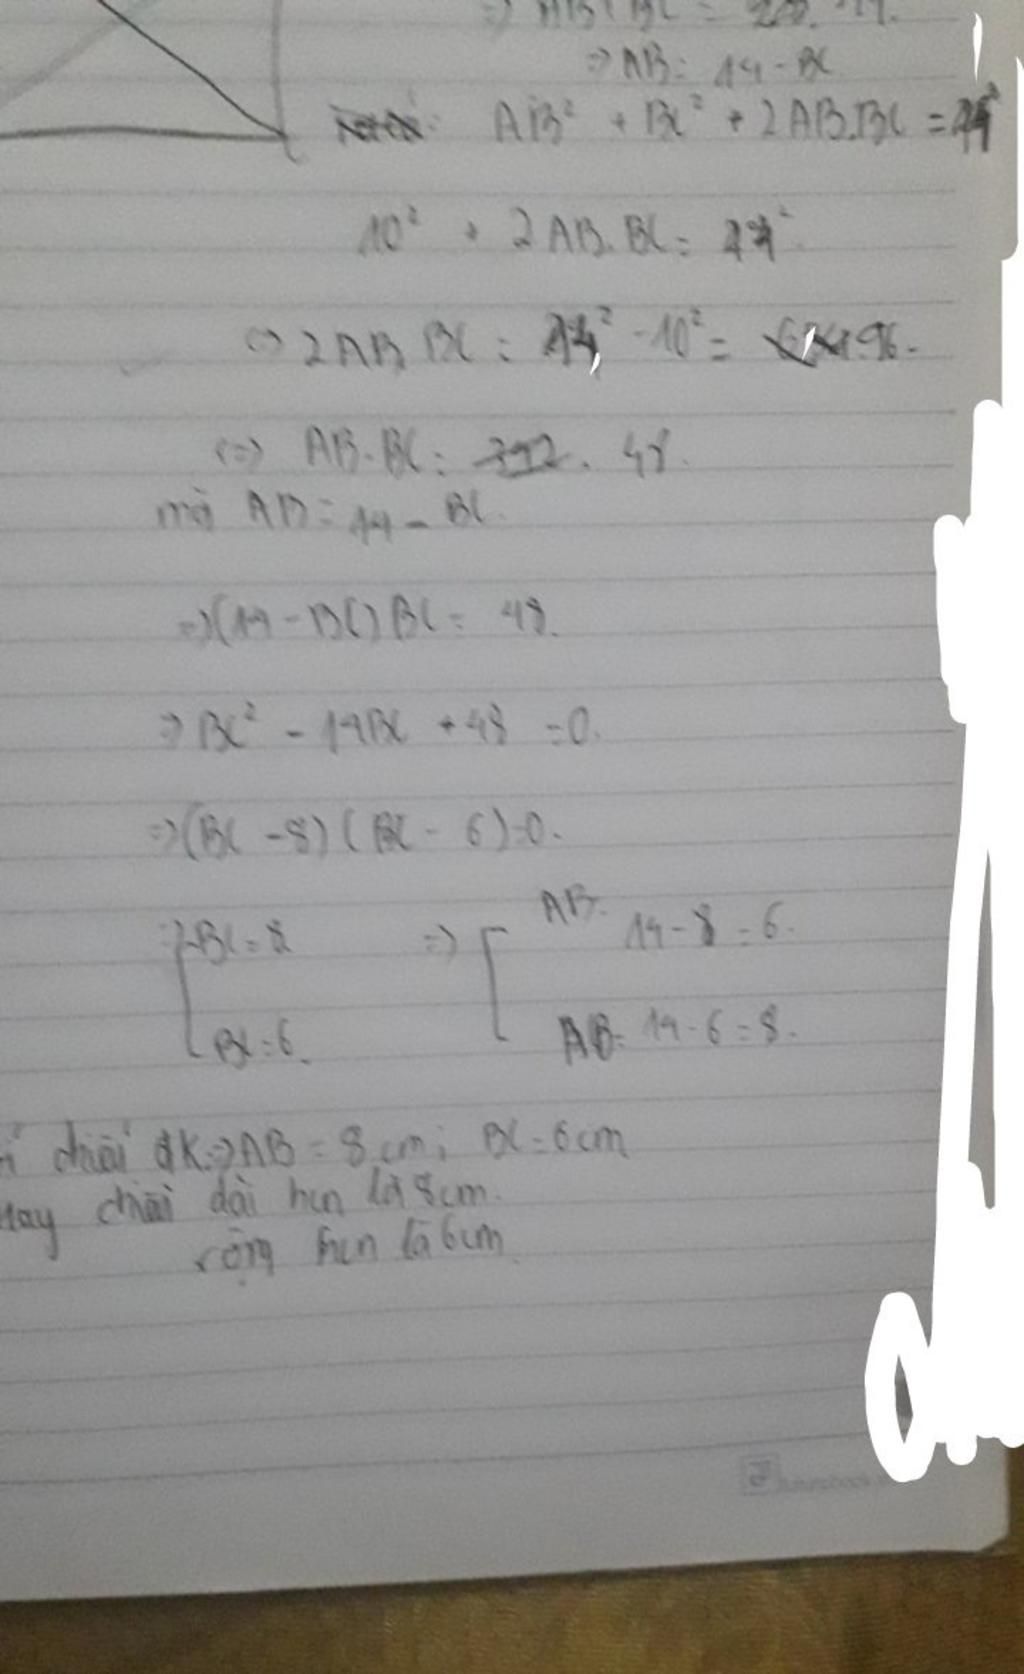 ⇒ AB + BC =
⇒ AB = 14 - BC
AB² + BC² + 2AB.BC = 14²
10² + 2AB.BC = 14²
⇔ 2AB.BC = 14² - 10² = 96.
⇔ AB.BC = 392. 48.
mà AB = 14 - BC.
⇒ (14 - BC) BC = 48.
⇒ BC² - 14BC + 48 = 0.
⇒ (BC - 8) (BC - 6) = 0.
⇒ BC = 8 ⇒ AB = 14 - 8 = 6.
BC = 6. AB = 14 - 6 = 8.
chiếu ĐK ⇒ AB = 8cm; BC = 6cm
Hay chiều dài hcn là 8cm.
rộng hcn là 6cm